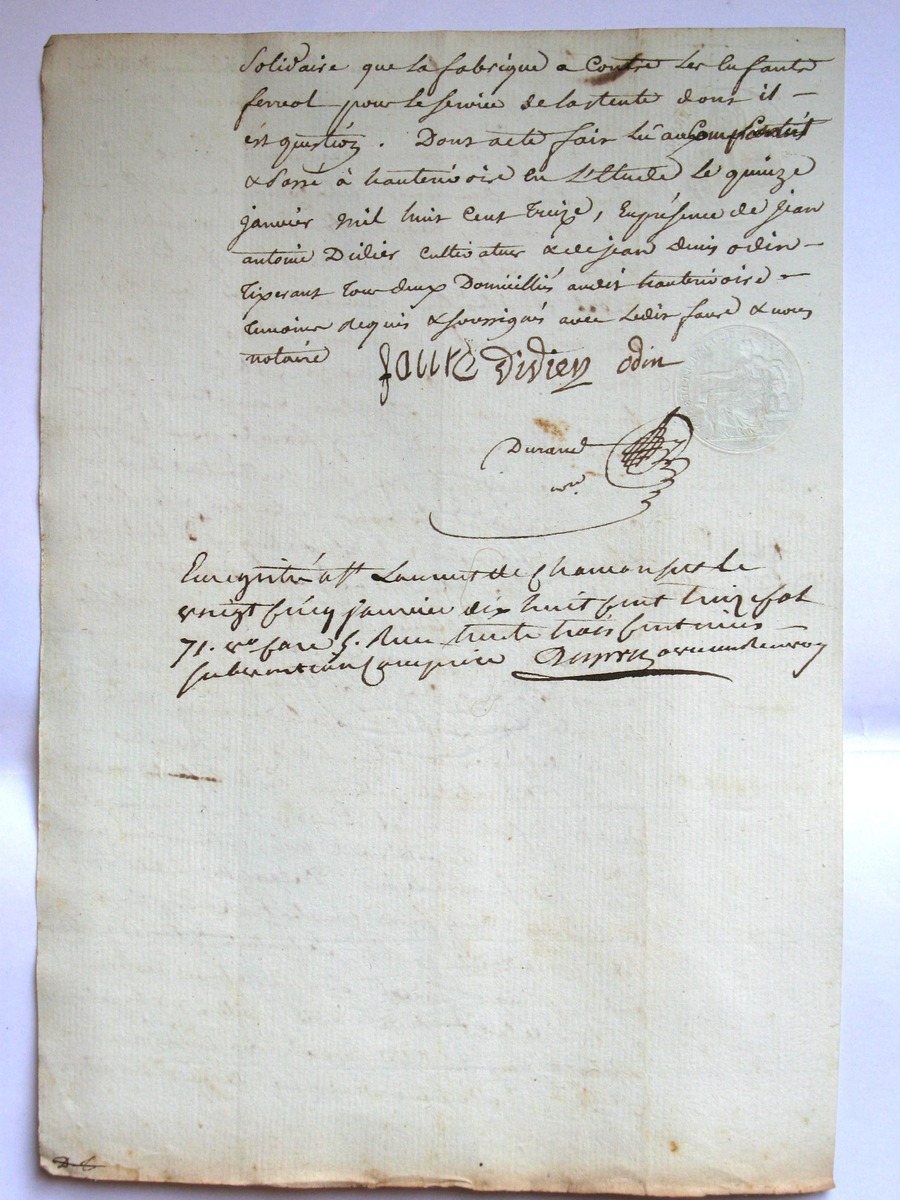 Solidaire que la fabrique a Contre les Enfants
ferreol pour le service de la rente dont il -
est question. Dont acte fait lû au Comparant
& Passé à hauterivoire en L'Etude Le quinze
janvier mil huit Cent treize, En présence de jean
antoine Didier Cultivateur & de jean denis odin -
Tixerant Tous deux Domiciliés audit hauterivoire -
Temoins requis & soussignés avec Ledit faure & nous
notaire
faure Didier odin
Durand
nre
Enregistré à St Laurent de Chamousset le
vingt Cinq janvier dix huit Cent treize fol
71. vo Case 5. Reçu trente trois Centimes
subvention Comprise